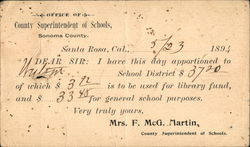 OFFICE OF
County Superintendent of Schools,
Sonoma County.
Santa Rosa, Cal., 5/23 1894
DEAR SIR: I have this day apportioned to
School District $ 37 20
of which $ 3 72 is to be used for library fund,
and $ 33 48 for general school purposes.
Very truly yours,
Mrs. F. McG. Martin,
County Superintendent of Schools.